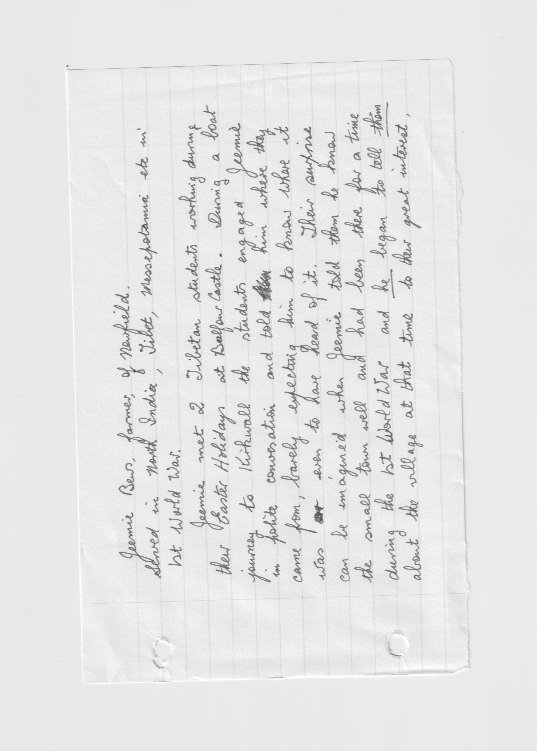 Jeemie Bews, farmer, of Newfield.
Served in North India, Tibet, Messepotamia etc in
1st World War.
Jeemie met 2 Tibetan students working during
their Easter Holidays at Balfour Castle. During a boat
journey to Kirkwall the students engaged Jeemie
in polite conversation and told him where they
came from, barely expecting him to know where it
was or even to have heard of it. Their surprise
can be imagined when Jeemie told them he knew
the small town well and had been there for a time
during the 1st World War and he began to tell them
about the village at that time to their great interest.